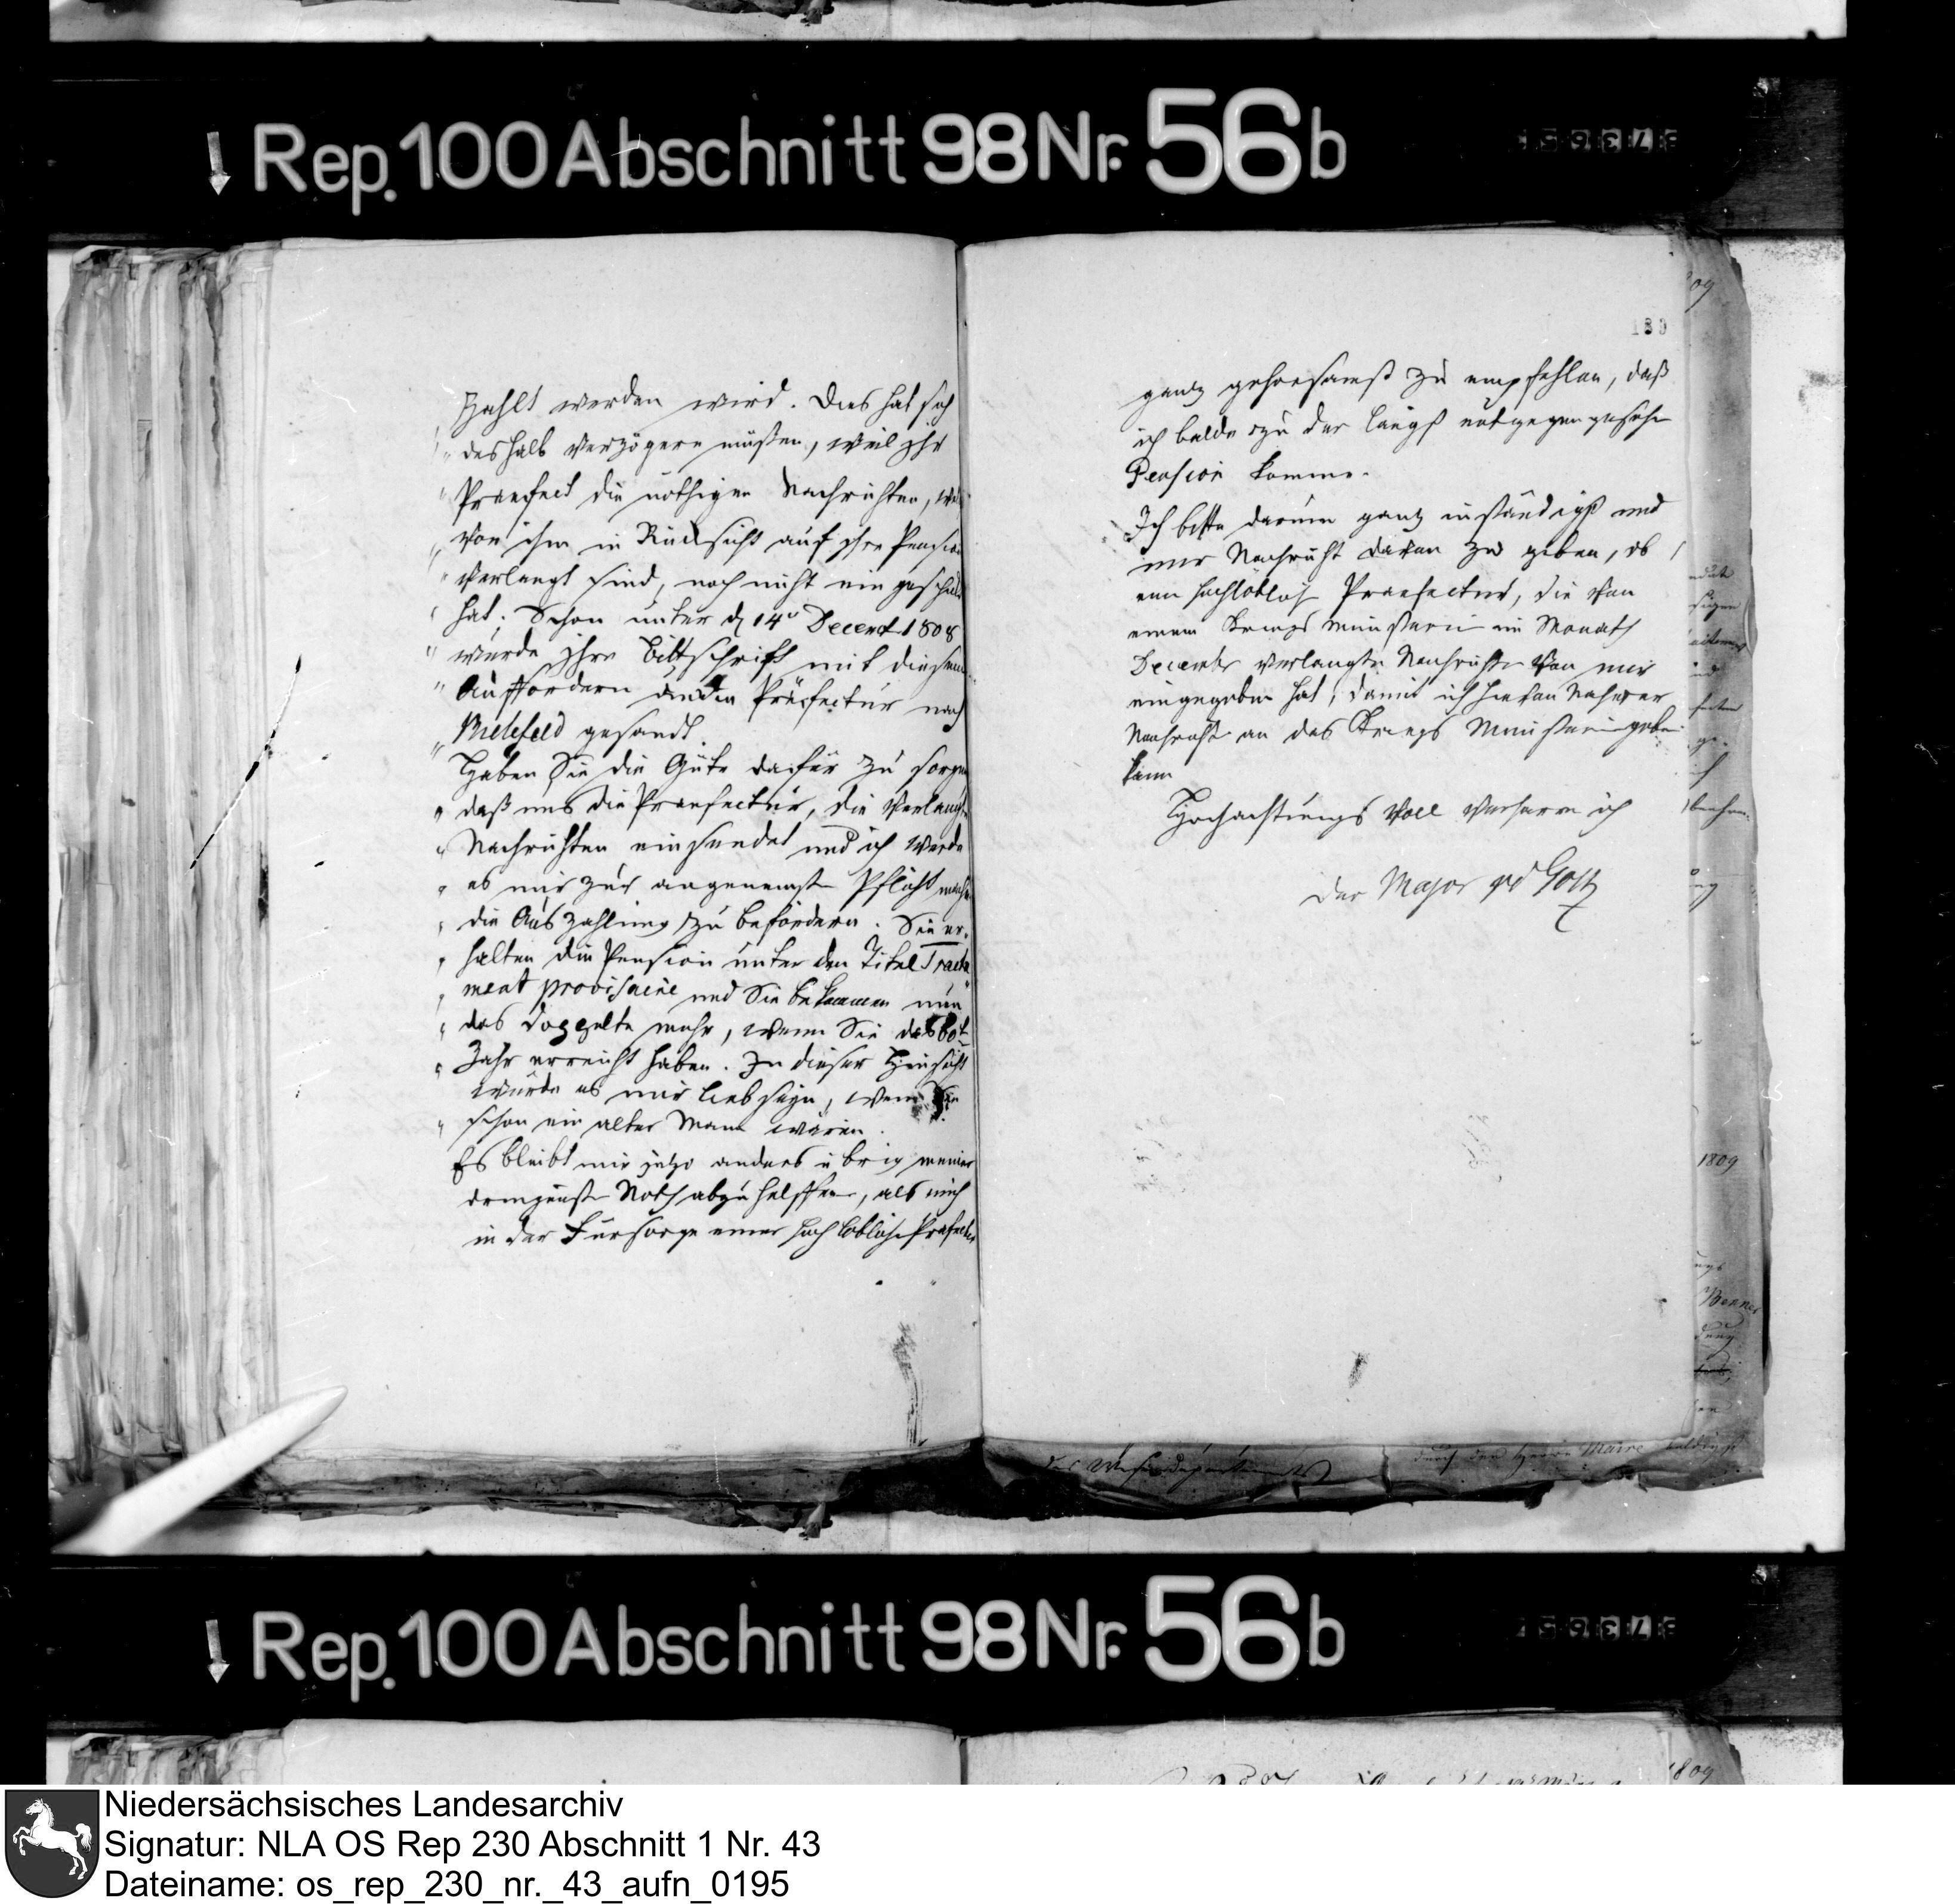 Rep. 100 Abschnitt 98 Nr. 56 b
zahlt werden wird. Dies hat sich
„ deshalb verzögern müßen, weil ihr
„ Praefect die nöthigen Nachrichten,
„ von ihm in Rücksicht auf ihre Pension
„ verlangt sind, noch nicht ein geschickt
hat. Schon unter d 14 Decemb 1808
„ wurde ihre Bittschrift mit diesem
„ Auffordern an die Präfectur nach
„ Bielefeld gesandt.
„ Haben Sie die Güte dafür zu sorgen
„ daß uns die Praefectur, die verlangte
„ Nachrichten einsendet und ich werde
„ es mir zur angenemste Pflicht mache
„ die Auszahlung zu befördern. Sie er-
„ halten die Pension unter den Titel Tracta
„ ment provisoire und Sie bekommen nun
„ das doppelte mehr, wenn Sie das 60t
„ Jahr erreicht haben. In dieser Hinsicht
würde es mir lieb seyn, wenn Sie
„ schon ein alter Mann wären.
Es bleibt mir jetzo anders übrig meiner
Noth abzuhelffen, als mich
in der Fürsorge einer hochlöbliche Präfectur
180
gantz gehorsamst zu empfehlen, daß
ich balde zu der längst entgegengesehn
Pension komme.
Ich bitte darum gantz inständigst und
mir Nachricht davon zu geben, ob
eine hochlöblich Praefectur, die von
einem Kriegs Ministerii im Monath
December verlangte Nachricht von mir
eingegeben hat, damit ich hievon naherer
Nachricht an das Kriegs Ministerin geben
kann
Hochachtungs voll verharre ich
der Major vd Goltz
1809
durch den Herrn Maire
Rep. 100 Abschnitt 98 Nr. 56 b
1809
Niedersächsisches Landesarchiv
Signatur: NLA OS Rep 230 Abschnitt 1 Nr. 43
Dateiname: os_rep_230_nr._43_aufn_0195